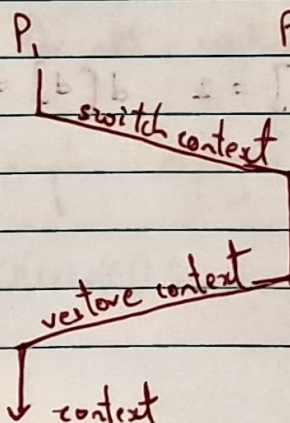 P₁ P
switch context
restore context
context